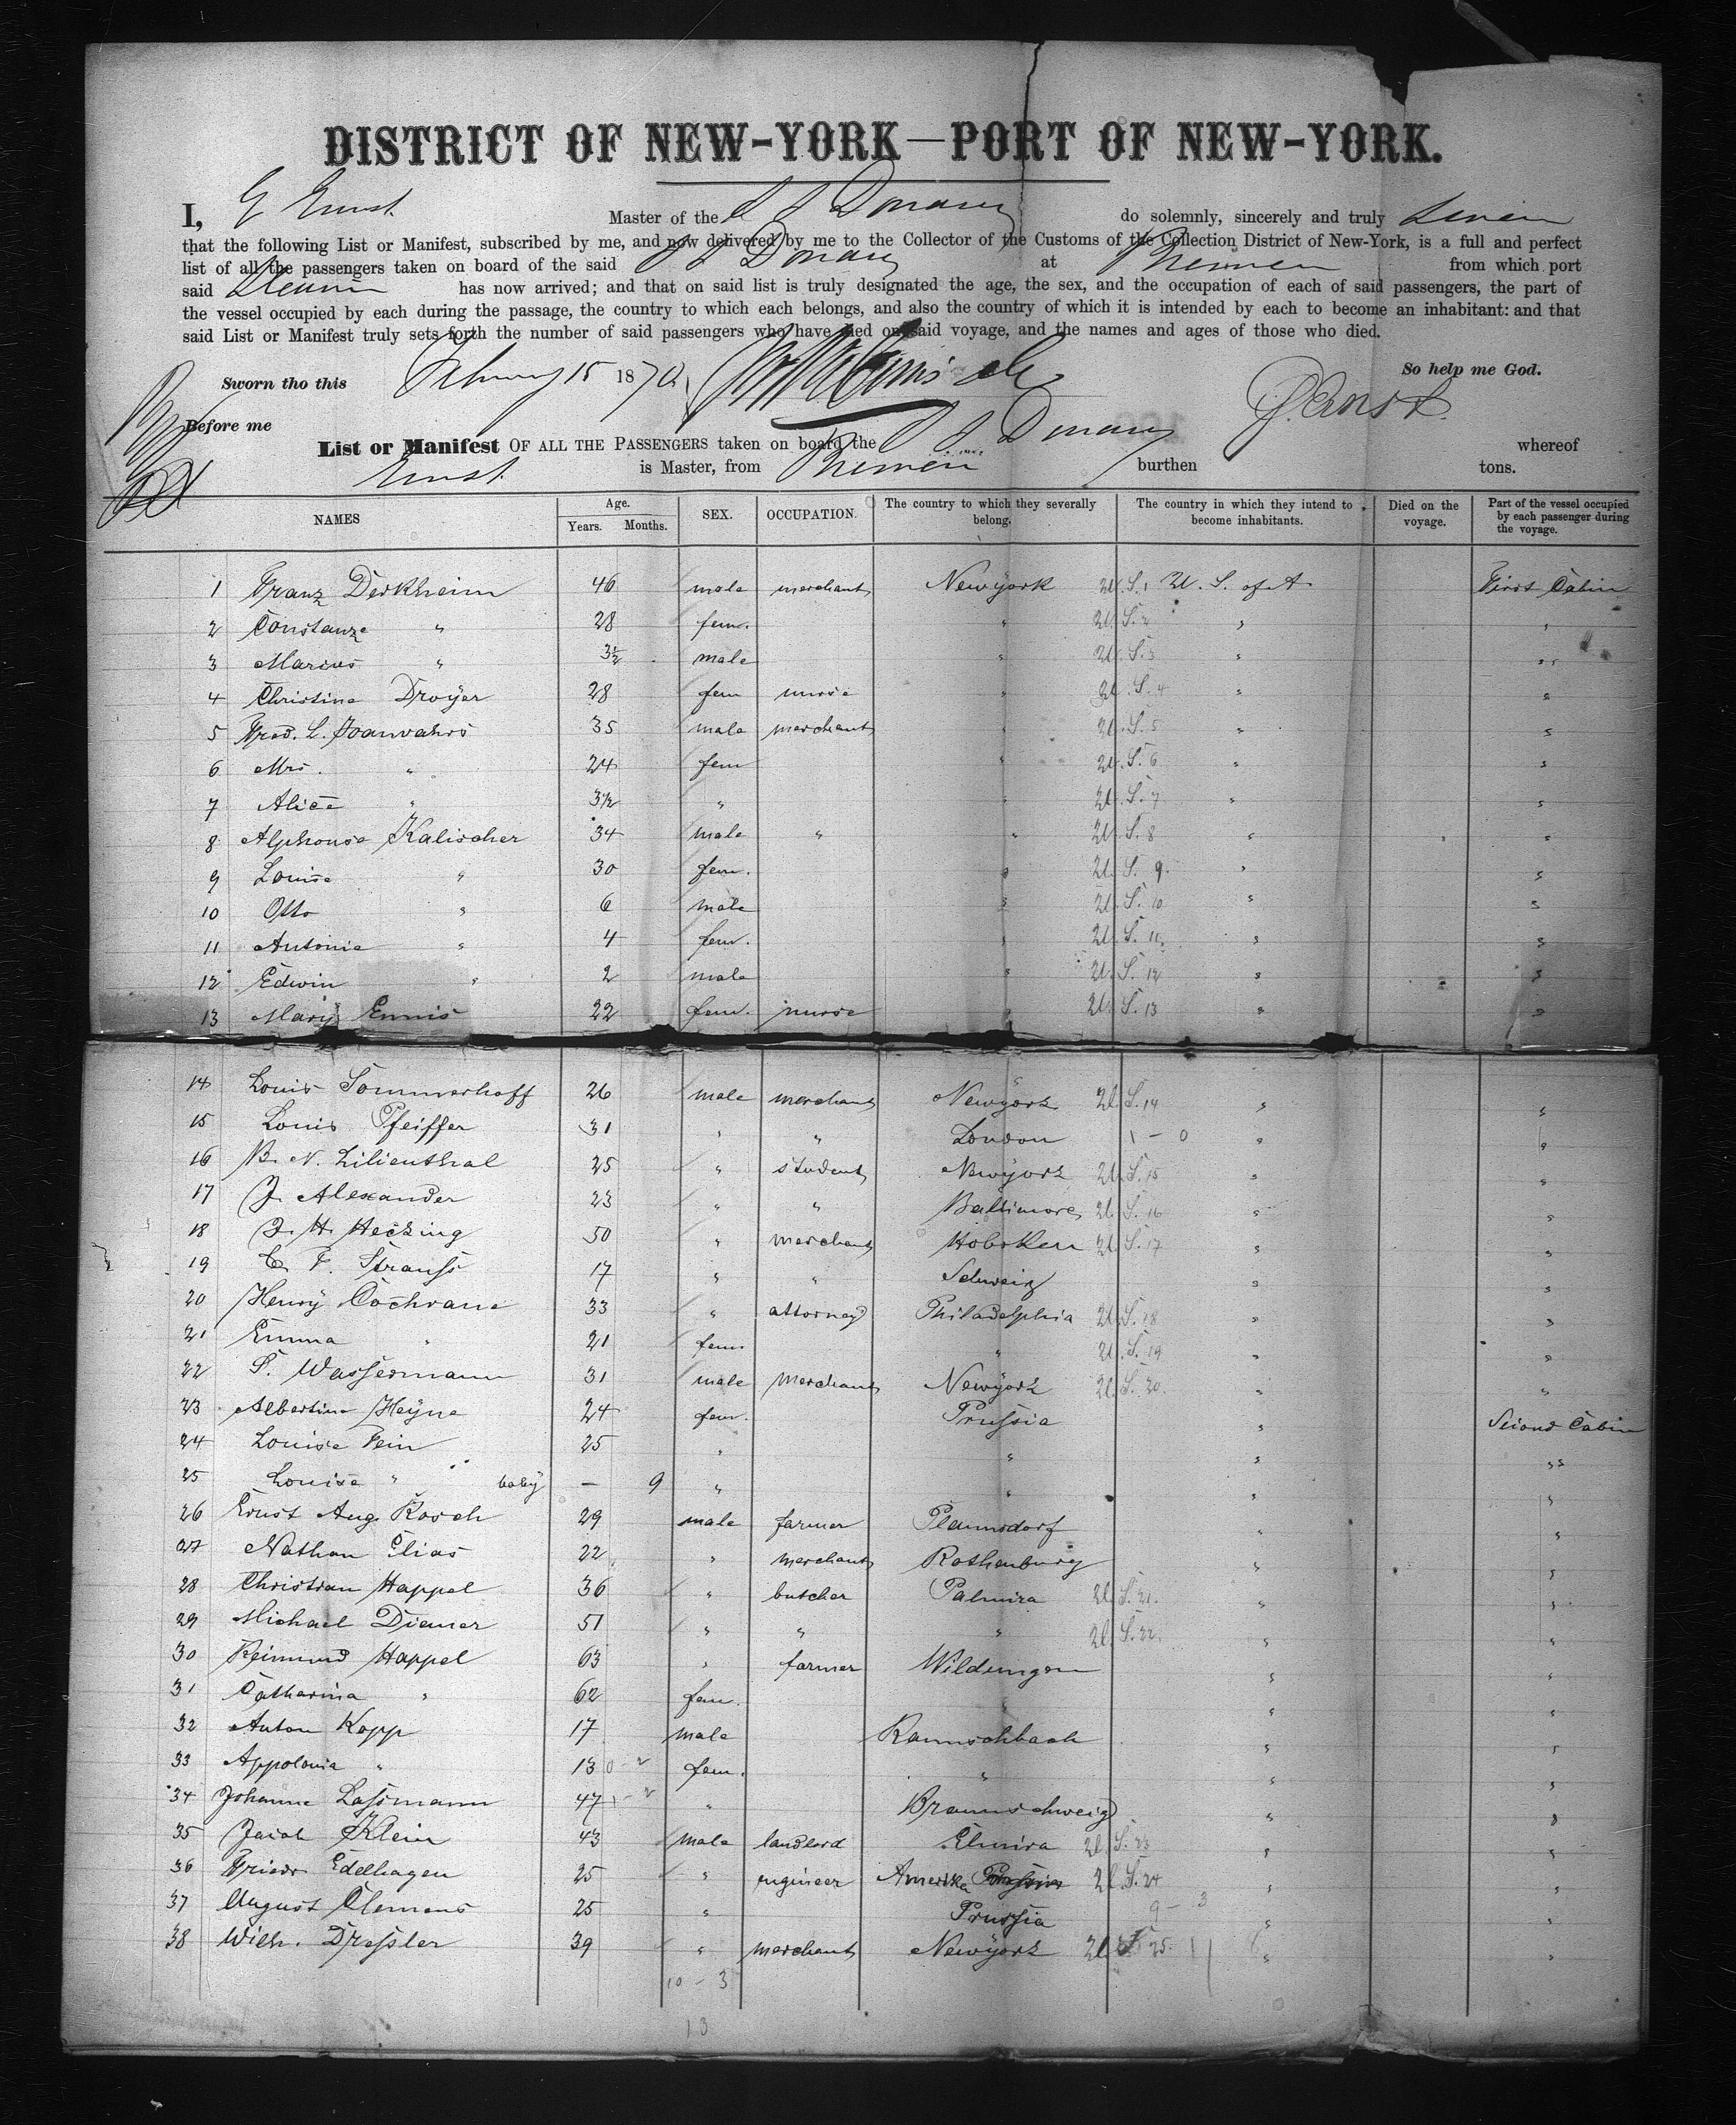 DISTRICT OF NEW-YORK—PORT OF NEW-YORK.
I, G Ernst Master of the S S Donau do solemnly, sincerely and truly swear
that the following List or Manifest, subscribed by me, and now delivered by me to the Collector of the Customs of the Collection District of New-York, is a full and perfect
list of all the passengers taken on board of the said S S Donau at Bremen from which port
said Steamer has now arrived; and that on said list is truly designated the age, the sex, and the occupation of each of said passengers, the part of
the vessel occupied by each during the passage, the country to which each belongs, and also the country of which it is intended by each to become an inhabitant: and that
said List or Manifest truly sets forth the number of said passengers who have died on said voyage, and the names and ages of those who died.
Sworn tho this February 15 1870 So help me God.
Before me G. Ernst
List or Manifest OF ALL THE PASSENGERS taken on board the S S Donau whereof
Ernst is Master, from Bremen burthen tons.
NAMES Age. Years. Months. SEX. OCCUPATION. The country to which they severally belong. The country in which they intend to become inhabitants. Died on the voyage. Part of the vessel occupied by each passenger during the voyage.
1 Franz Derkheim 46 male merchant Newyork U.S. 1 U. S. of A. First Cabin
2 Constanze " 28 fem. " U.S. 2 " "
3 Marius " 3½ male " U.S. 3 " "
4 Christine Droyer 28 fem nurse " U.S. 4 " "
5 Fred. L. 35 male merchant " U.S. 5 " "
6 Mrs. " 24 fem " U.S. 6 " "
7 Alice " 3½ " " U.S. 7 " "
8 Alphonse Kalischer 34 male " " U.S. 8 " "
9 Louise " 30 fem. " U.S. 9. " "
10 Otto " 6 male " U.S. 10 " "
11 Antonie " 4 fem. " U.S. 11. " "
12 Edwin " 2 male " U.S. 12 " "
13 Mary Ennis 22 fem. nurse " U.S. 13 " "
14 Louis Sommerhoff 26 male merchant Newyork U.S. 14 " "
15 Louis Pfeiffer 31 " " London 1 - 0 " "
16 B. N. Lilienthal 25 " student Newyork U.S. 15 " "
17 J. Alexander 23 " " Baltimore U.S. 16 " "
18 J. H. Hecking 50 " merchant Hoboken U.S. 17 " "
19 C. F. Strauss 17 " " Schweiz " "
20 Henry Cochrane 33 " attorney Philadelphia U.S. 18 " "
21 Emma " 21 fem " U.S. 19 " "
22 S. Wassermann 31 male merchant Newyork U.S. 20. " "
23 Albertine Heyne 24 fem. Prussia " Second Cabin
24 Louise Fein 25 " " " "
25 Louise " baby — 9 " " " "
26 Ernst Aug. Rosch 29 male farmer " "
27 Nathan Elias 22 " merchant Rothenburg " "
28 Christian Happel 36 " butcher Palmira U.S. 21. " "
29 Michael Diemer 51 " " " U.S. 22. " "
30 Reimund Happel 63 " farmer Wildungen " "
31 Catharina " 62 fem. " " "
32 Anton Kopp 17 male Ramschbach " "
33 Appolonia " 13 0 - 2 fem. " " "
34 Johanne Lassmann 47 1 - 2 " Braunschweig " "
35 Jacob Klein 43 male landlord Elmira U.S. 23 " "
36 Friedr Edelhagen 25 " engineer Amerika U.S. 24 " "
37 August Clemens 25 " Prussia 9 - 3 " "
38 Wilh. Dressler 39 " merchant Newyork U.S. 25. 11 6 " "
10 - 3
13